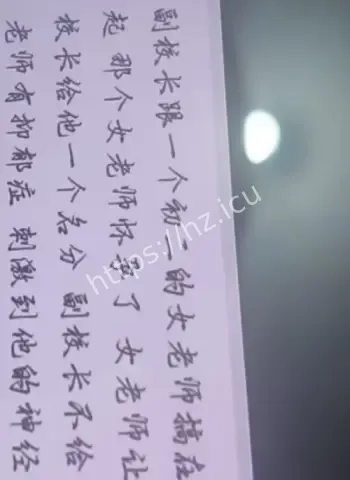 副校长跟一个初二的女老师搞在
起 那个女老师怀孕了 女老师让
校长给他一个名分 副校长不给
老师有抑郁症 刺激到他的神经
https://hz.icu